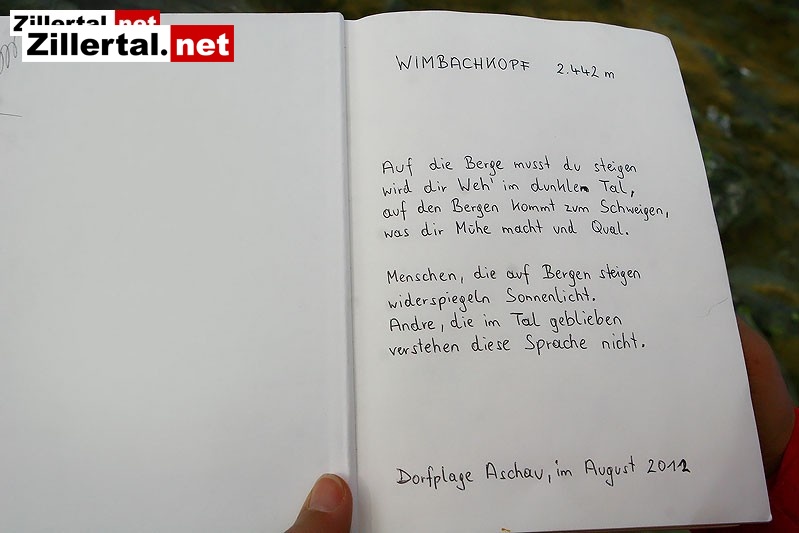 Zillertal.net
Zillertal.net
WIMBACHKOPF 2.442 m
Auf die Berge musst du steigen
wird dir Weh' im dunklen Tal,
auf den Bergen kommt zum Schweigen,
was dir Mühe macht und Qual.
Menschen, die auf Bergen steigen
widerspiegeln Sonnenlicht.
Andre, die im Tal geblieben
verstehen diese Sprache nicht.
Dorfplage Aschau, im August 2012